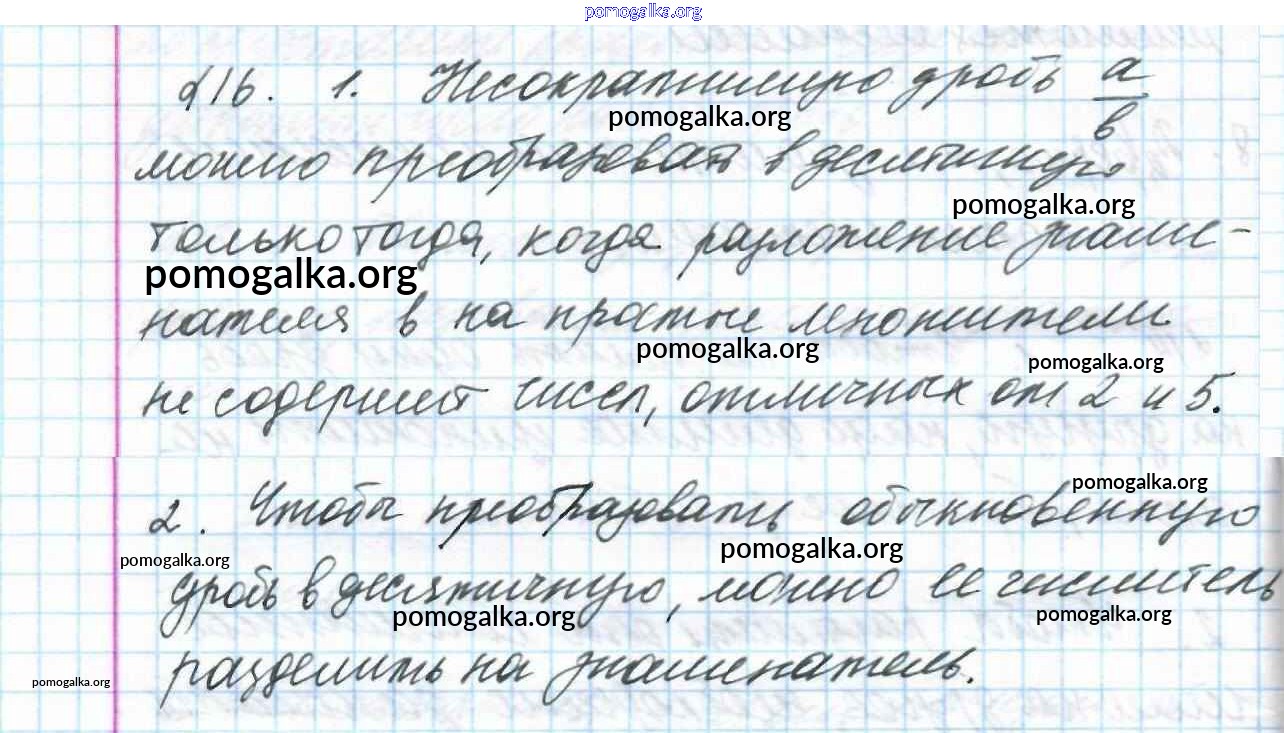 pomogalka.org
§16. 1. Несократимую дробь a/b
pomogalka.org
можно преобразовать в десятичную
pomogalka.org
только тогда, когда разложение знаме-
pomogalka.org
нателя в на простые множители
pomogalka.org
pomogalka.org
не содержит чисел, отличных от 2 и 5.
pomogalka.org
2. Чтобы преобразовать обыкновенную
pomogalka.org
pomogalka.org
дробь в десятичную, можно ее числитель
pomogalka.org
pomogalka.org
разделить на знаменатель.
pomogalka.org